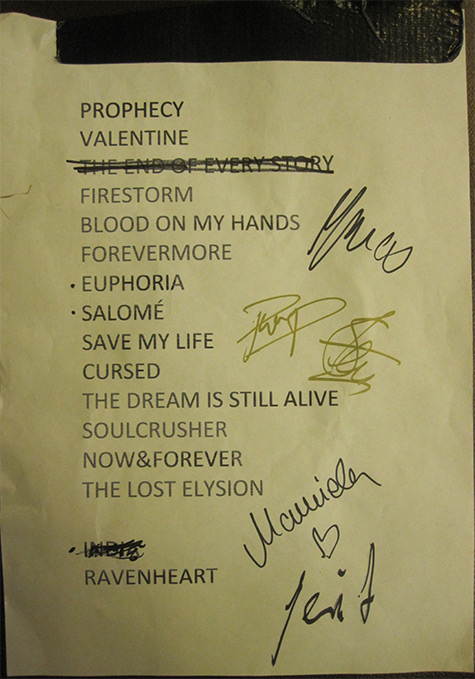 PROPHECY
VALENTINE
THE END OF EVERY STORY
FIRESTORM
BLOOD ON MY HANDS
FOREVERMORE
• EUPHORIA
• SALOMÉ
SAVE MY LIFE
CURSED
THE DREAM IS STILL ALIVE
SOULCRUSHER
NOW&FOREVER
THE LOST ELYSION
•
RAVENHEART